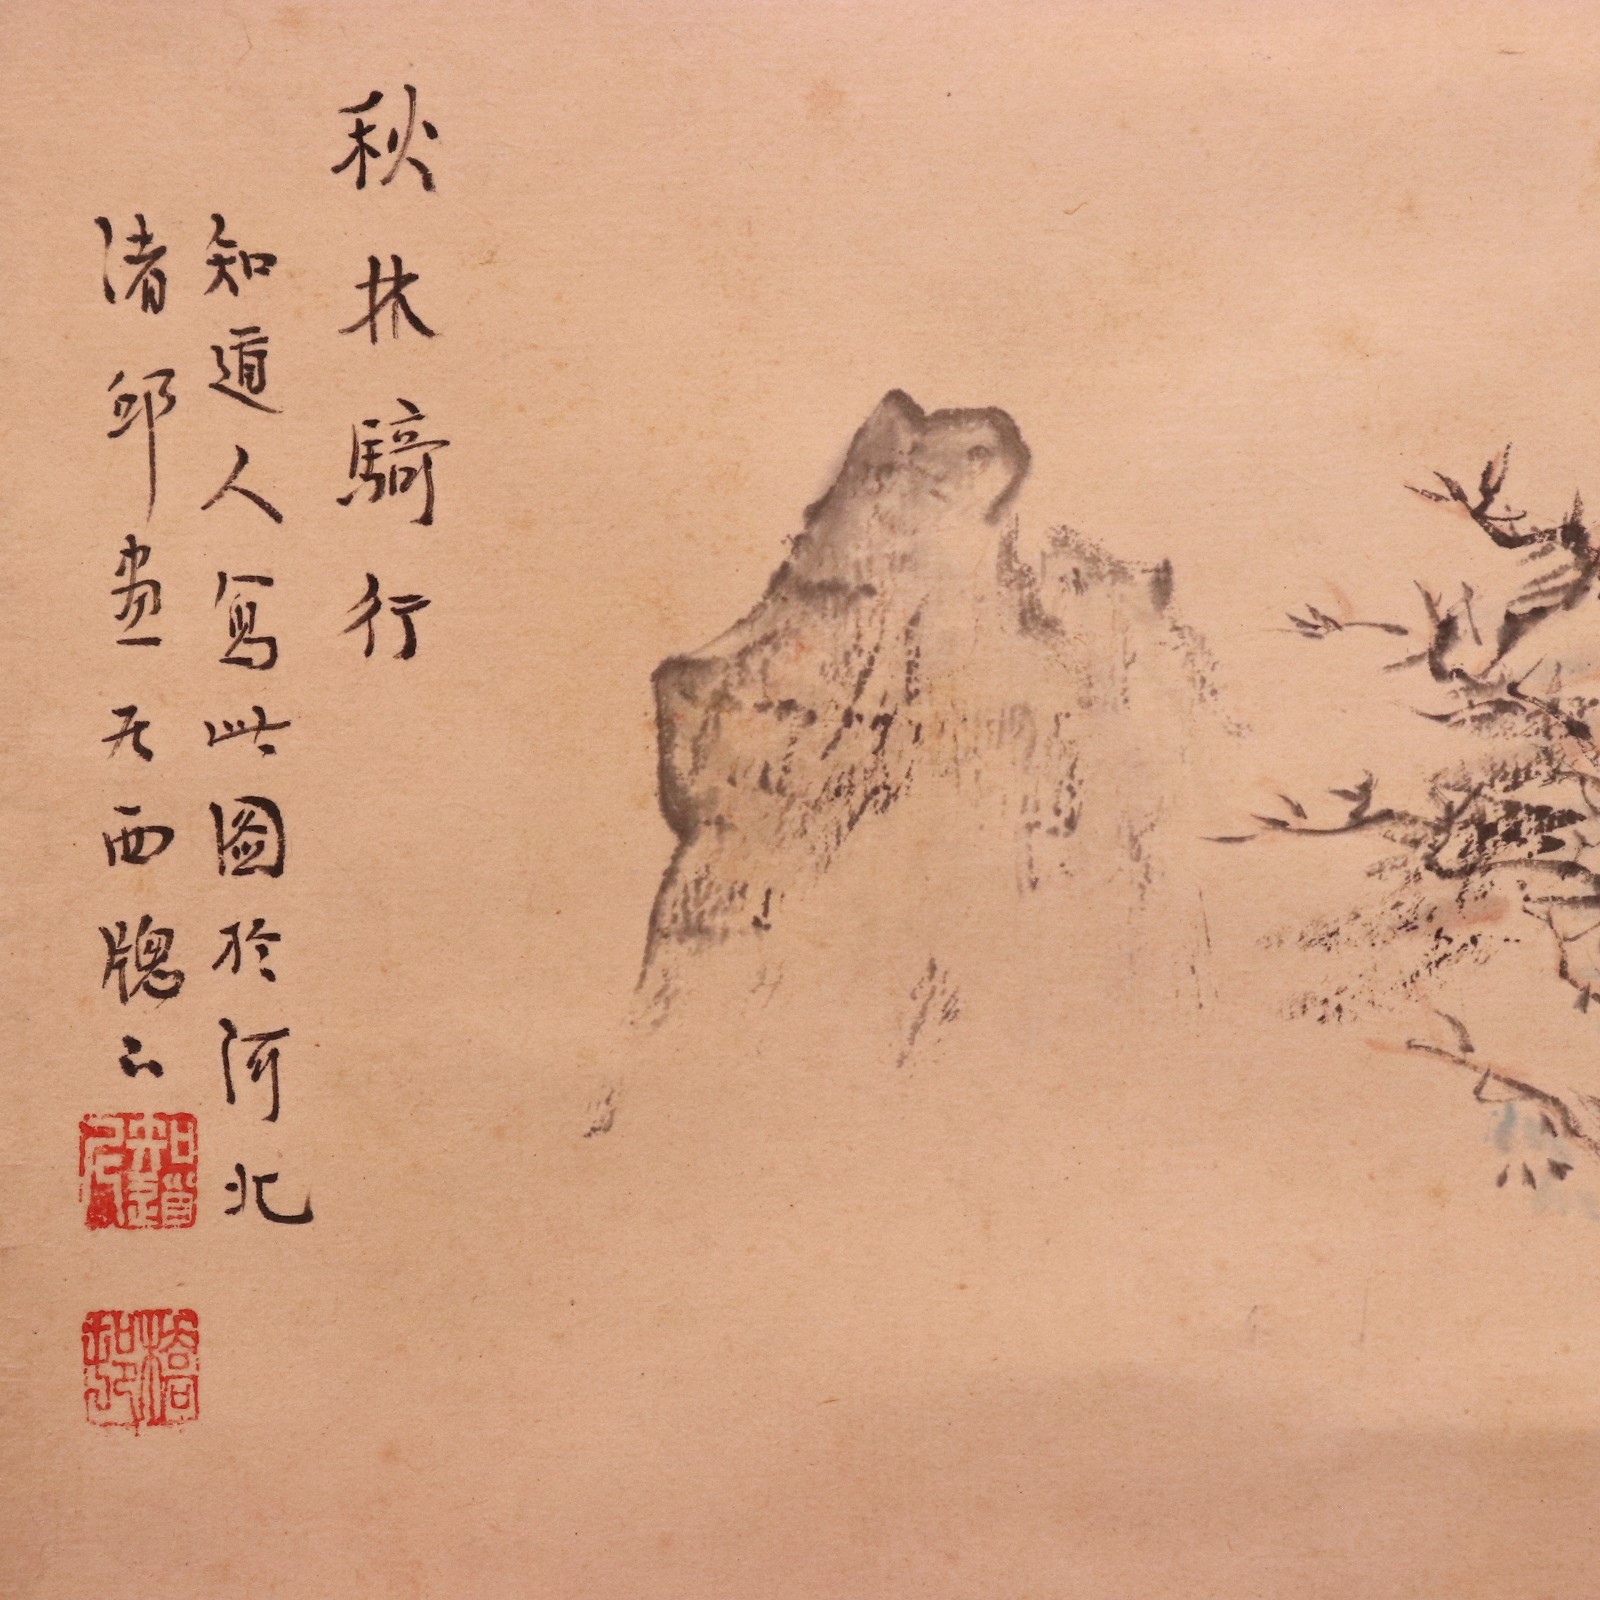 秋林騎行
知道人寫此圖於河北
渚邨畫无西牕下